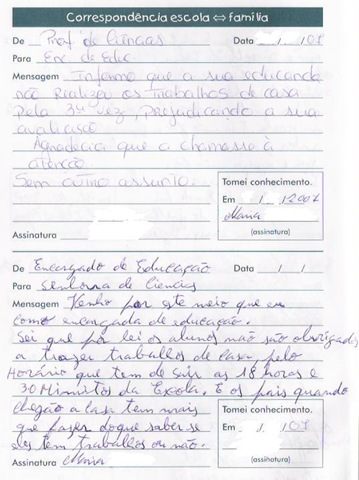 Correspondência escola ⇔ família
De Prof. de Ciências Data / /07
Para Enc. de Educ
Mensagem Informo que a sua educanda
não realizou os trabalhos de casa
pela 3ª vez, prejudicando a sua
avaliação.
Agradecia que a chamasse à
atenção.
Sem outro assunto.
Tomei conhecimento.
Em / /2007
Maria
(assinatura)
Assinatura
De Encargado de Educação Data / /
Para senhora de Ciencias
Mensagem Venho por este meio que eu
como encargada de educação.
Sei que por lei os alunos não são obrigados
a trazer traballos de casa, pelo
Horário que tem de sair as 18 horas e
30 Minutos da Escola. E os pais quando
chegão a casa tem mais
que fazer doque saber se
eles tem traballos ou não.
Tomei conhecimento.
Em / /07
(assinatura)
Assinatura Maria